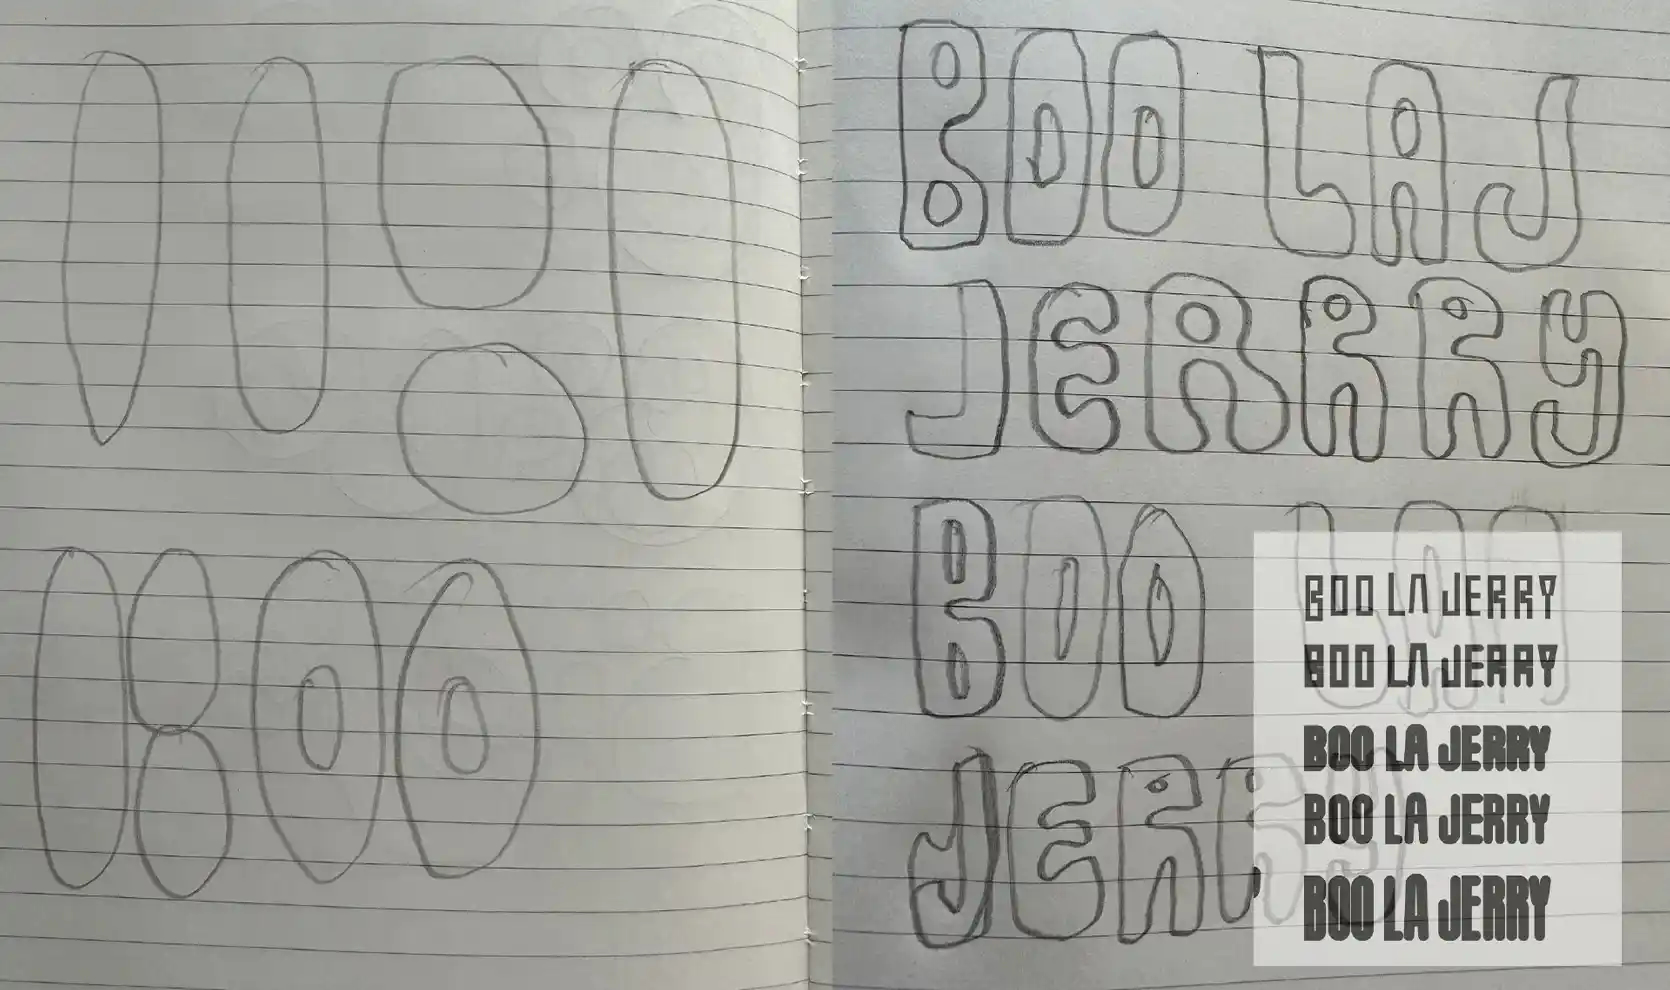 BOO
BOO LAJ
JERRRY
BOO LA
JERRY
BOO LA JERRY
BOO LA JERRY
BOO LA JERRY
BOO LA JERRY
BOO LA JERRY